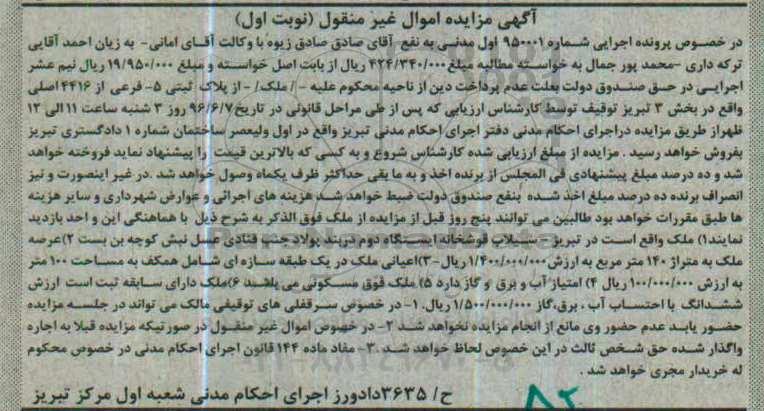 آگهی مزایده اموال غیر منقول (نوبت اول)
در خصوص پرونده اجرایی شماره ۹۵۰۰۰۱ اول مدنی به نفع آقای صادق صادق زیوه با وکالت آقای امانی- به زیان احمد آقایی
ترکه داری -محمد پور جمال به خواسته مطالبه مبلغ ۴۲۴/۳۴۰/۰۰۰ ریال از بابت اصل خواسته و مبلغ ۱۹/۹۵۰/۰۰۰ ریال نیم عشر
اجرایی در حق صندوق دولت بعلت عدم پرداخت دین از ناحیه محکوم علیه -/ ملک/ - از پلاک ثبتی ۵- فرعی از ۴۴۱۶ اصلی
واقع در بخش ۳ تبریز توقیف توسط کارشناس ارزیابی که پس از طی مراحل قانونی در تاریخ ۹۶/۶/۷ روز ۳ شنبه ساعت ۱۱ الی ۱۲
ظهراز طریق مزایده دراجرای احکام مدنی دفتر اجرای احکام مدنی تبریز واقع در اول ولیعصر ساختمان شماره ۱ دادگستری تبریز
بفروش خواهد رسید . مزایده از مبلغ ارزیابی شده کارشناس شروع و به کسی که بالاترین قیمت را پیشنهاد نماید فروخته خواهد
شد و ده درصد مبلغ پیشنهادی فی المجلس از برنده اخذ و به ما بقی حداکثر ظرف یکماه وصول خواهد شد .در غیر اینصورت و نیز
انصراف برنده ده درصد مبلغ اخذ شده بنفع صندوق دولت ضبط خواهد شد هزینه های اجرائی و عوارض شهرداری و سایر هزینه
ها طبق مقررات خواهد بود طالبین می توانند پنج روز قبل از مزایده از ملک فوق الذکر به شرح ذیل با هماهنگی این و احد بازدید
نمایند۱) ملک واقع است در تبریز سیلاب قوشخانه ایستگاه دوم دربند پولاد جنب قنادی عسل نبش کوچه بن بست ۲)عرصه
ملک به متراژ ۱۴۰ متر مربع به ارزش ۱/۴۰۰/۰۰۰/۰۰۰ ریال-۳)اعیانی ملک در یک طبقه سازه ای شامل همکف به مساحت ۱۰۰ متر
به ارزش ۱۰۰/۰۰۰/۰۰۰ ریال ۴) امتیاز آب و برق و گاز دارد ۵) ملک فوق مسکونی می باشد ۶)ملک دارای سابقه ثبت است ارزش
ششدانگ با احتساب آب ، برق،گاز ۱/۵۰۰/۰۰۰/۰۰۰ ریال. ۱- در خصوص سرقفلی های توقیفی مالک می تواند در جلسه مزایده
حضور یابد عدم حضور وی مانع از انجام مزایده نخواهد شد ۲- در خصوص اموال غیر منقول در صورتیکه مزایده قبلا به اجاره
واگذار شده حق شخص ثالث در این خصوص لحاظ خواهد شد .۳- مفاد ماده ۱۴۴ قانون اجرای احکام مدنی در خصوص محکوم
له خریدار مجری خواهد شد .
ح/ ۳۶۳۵دادورز اجرای احکام مدنی شعبه اول مرکز تبریز
۸۲